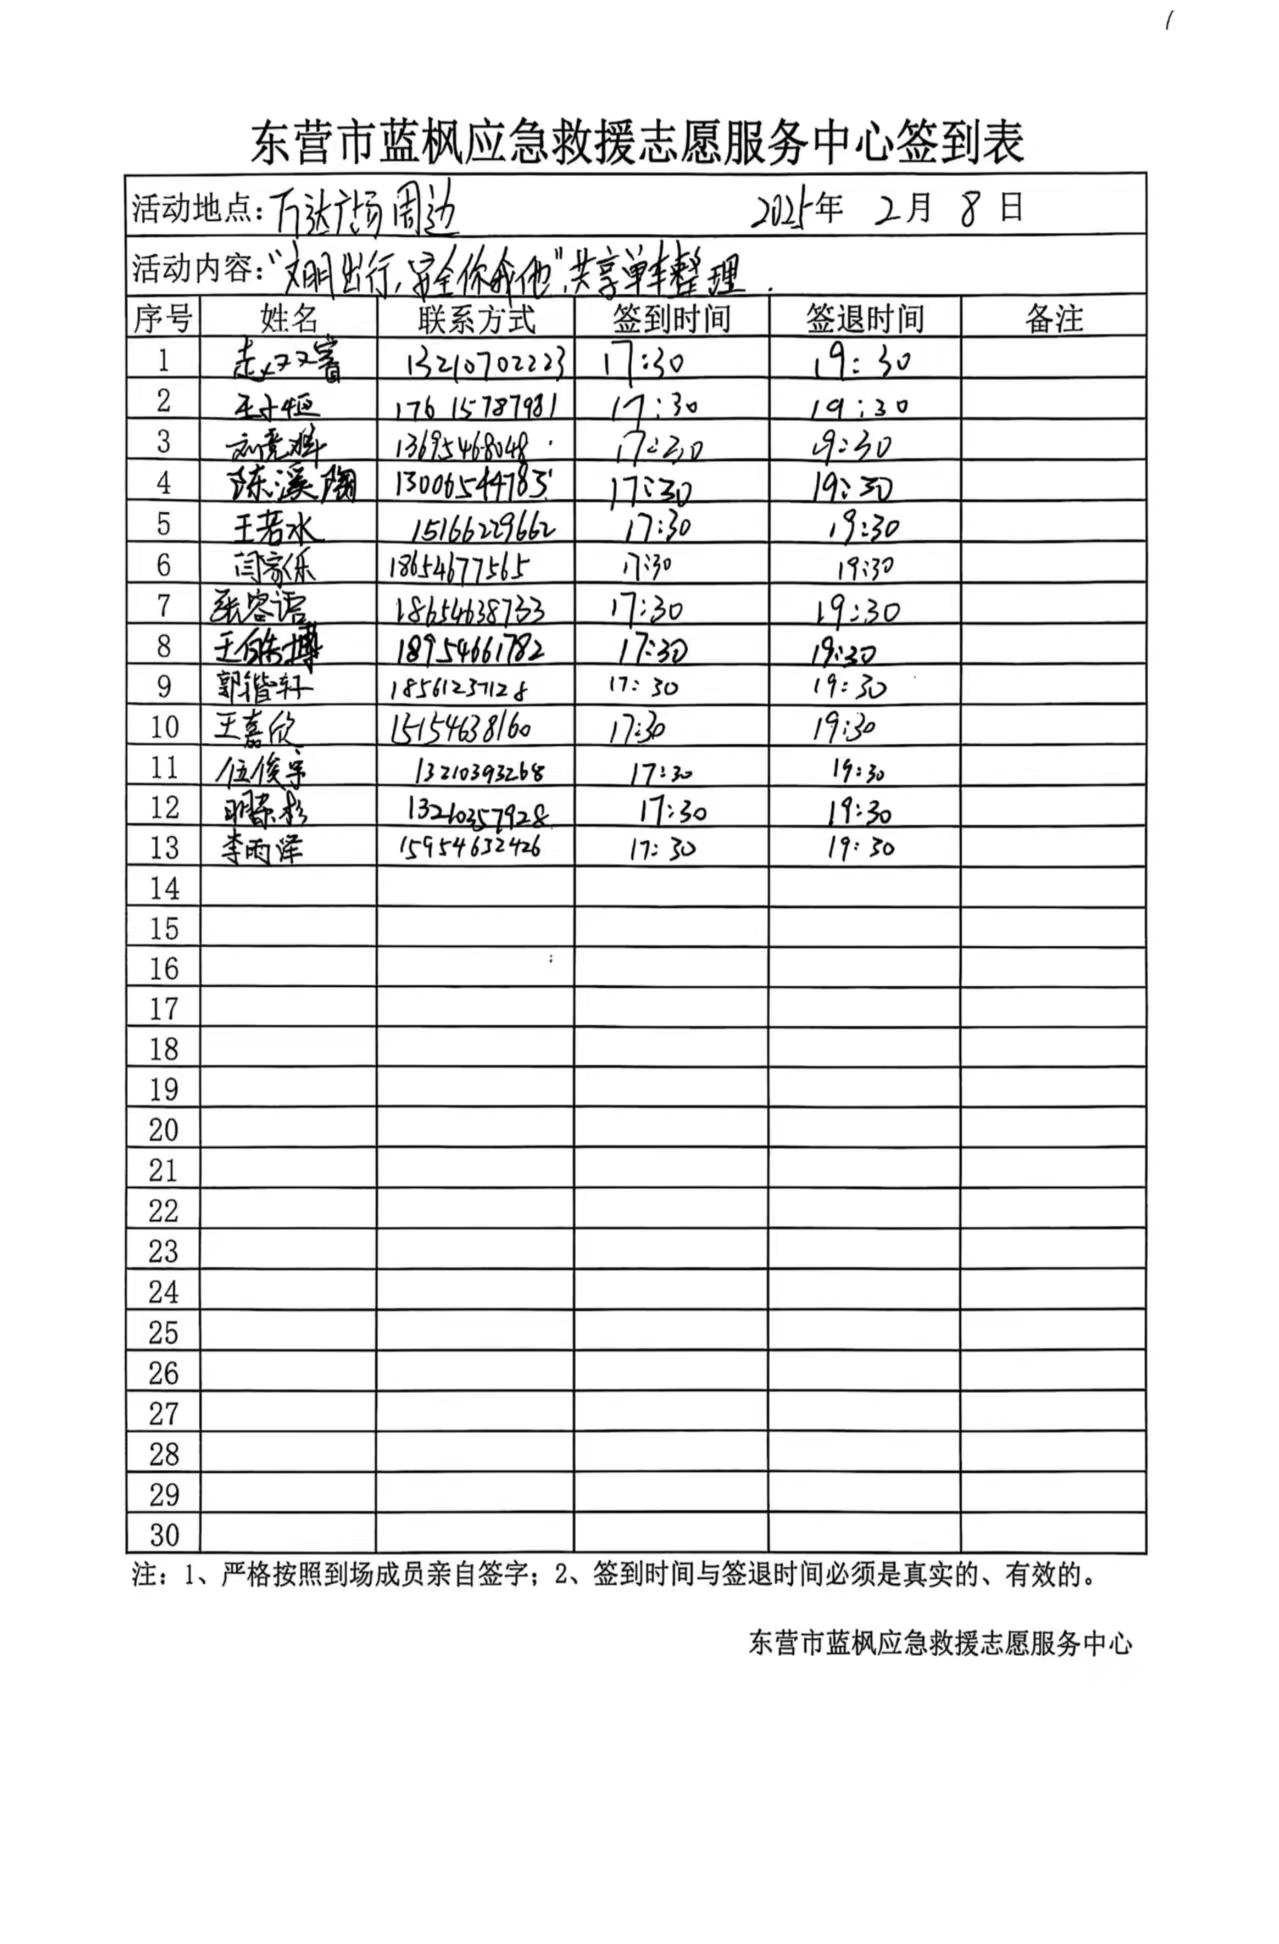 东营市蓝枫应急救援志愿服务中心签到表
活动地点：万达广场周边 2025年 2月 8日
活动内容："文明出行，安全你我他"共享单车整理.
序号 姓名 联系方式 签到时间 签退时间 备注
1 赵双睿 13210702223 17:30 19:30
2 17615787981 17:30 19:30
3 13695468048 17:30 19:30
4 陈溪陶 13006544785 17:30 19:30
5 王若水 15166229662 17:30 19:30
6 闫家乐 18654677565 17:30 19:30
7 张容语 18654638733 17:30 19:30
8 王皓博 18954661782 17:30 19:30
9 郭锴轩 18561237128 17:30 19:30
10 王嘉欣 15154638160 17:30 19:30
11 伍俊宇 13210393268 17:30 19:30
12 13210357928 17:30 19:30
13 李雨泽 15954632426 17:30 19:30
14
15
16
17
18
19
20
21
22
23
24
25
26
27
28
29
30
注：1、严格按照到场成员亲自签字；2、签到时间与签退时间必须是真实的、有效的。
东营市蓝枫应急救援志愿服务中心